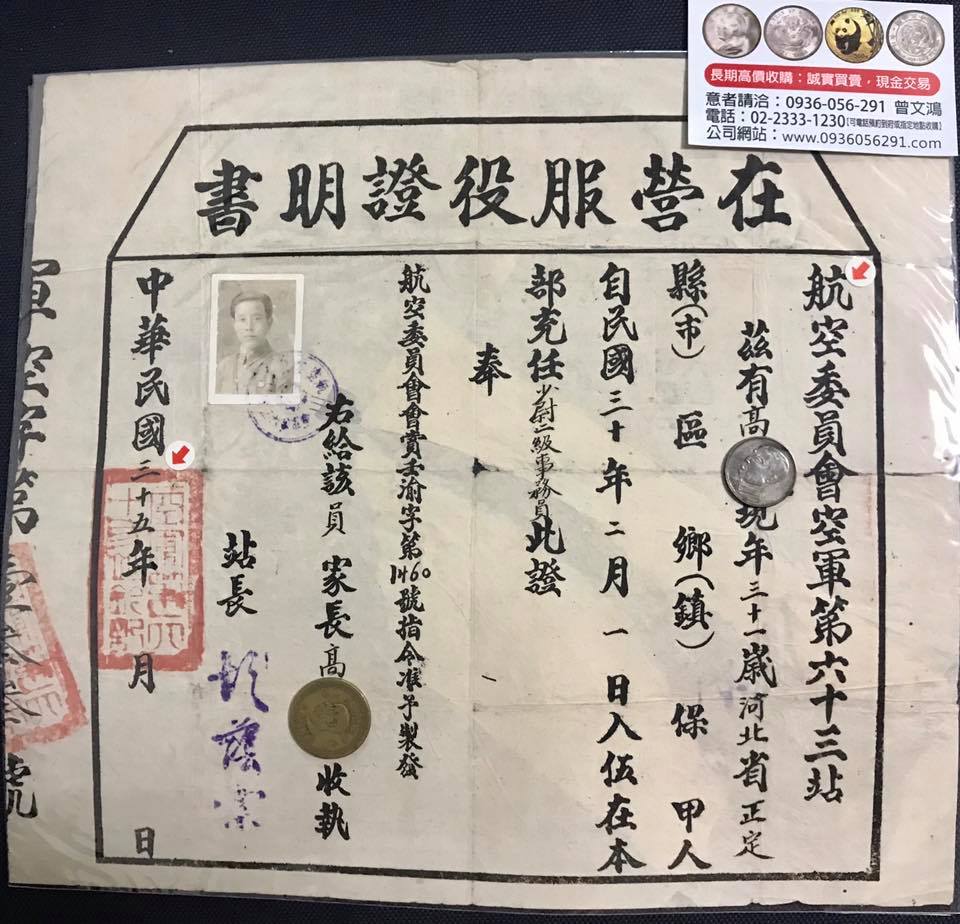 長期高價收購：誠實買賣，現金交易
意者請洽：0936-056-291 曾文鴻
電話：02-2333-1230【可電話預約到府或指定地點收購】
公司網站：www.0936056291.com
在營服役證明書
航空委員會空軍第六十三站
茲有高 現年三十一歲河北省正定
縣(市) 區 鄉(鎮) 保 甲人
自民國三十年二月一日入伍在本
部充任少尉二級事務員此證
奉
航空委員會會賞壬渝字第1460號指令准予製發
右給該員 家長高 收執
站長
中華民國三十五年 月 日
軍空字第 號